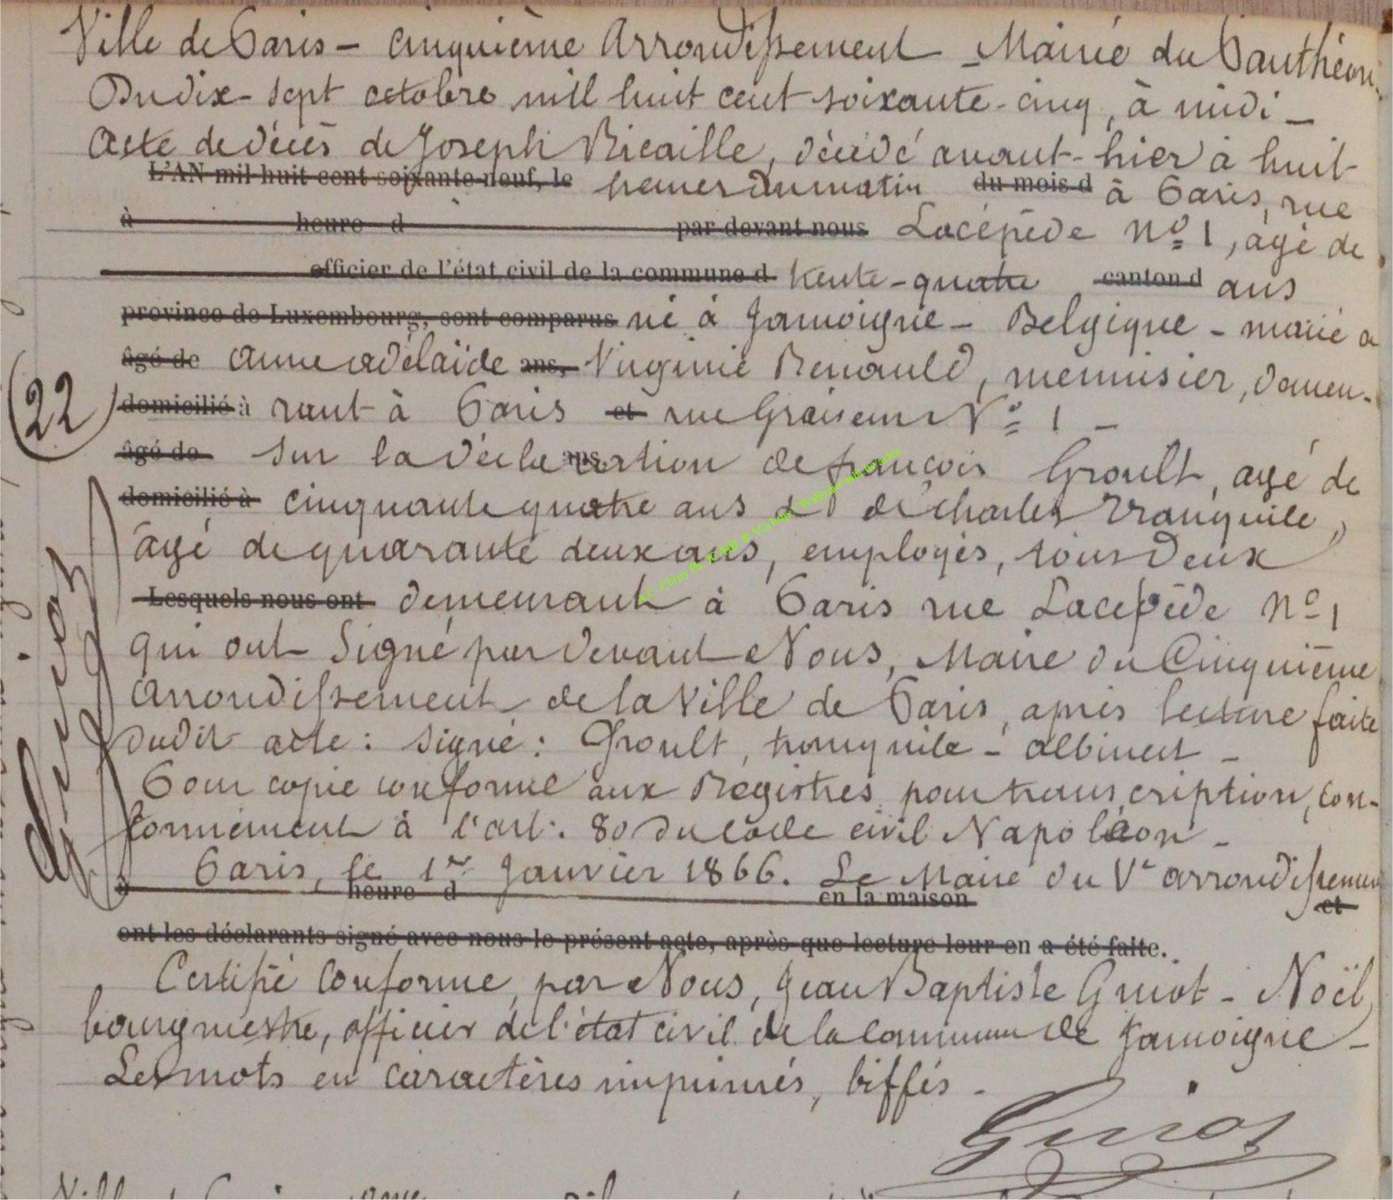 Ville de Paris – cinquième Arrondissement – Mairie du Panthéon
Du dix-sept octobre mil huit cent soixante-cinq, à midi –
Acte de décès de Joseph Bicaille, décédé avant-hier à huit
L'AN mil huit cent soixante-neuf, le heures du matin du mois d à Paris, rue
à heure d par devant nous Lacépède Nº 1, âgé de
officier de l'état civil de la commune d trente-quatre canton d ans
province de Luxembourg, sont comparus né à Jamoigne – Belgique – marié à
âgé de Anne Adélaïde ans, Virginie Renauld, menuisier, demeu-
(22) domicilié à rant à Paris et rue Nº 1 –
âgé de Sur la déclaration ans de françois Groult, agé de
domicilié à cinquante quatre ans et de Charles Tranquile,
âgé de quarante deux ans, employés, tous deux
Lesquels nous ont demeurant à Paris rue Lacépède Nº 1
qui ont signé par devant Nous, Maire du Cinquième
Arrondissement de la Ville de Paris, après lecture faite
dudit acte : signé : Groult, tranquile –
Pour copie conforme aux Registres pour transcription, con-
formément à l'art. 80 du code civil Napoléon –
Paris, le 1er Janvier 1866. Le Maire du Ve arrondissement
à heure d en la maison et
ont les déclarants signé avec nous le présent acte, après que lecture leur en a été faite.
Certifié conforme, par Nous, Jean Baptiste Guiot – Noël,
bourgmestre, officier de l'état civil de la commune de Jamoigne –
Les mots en caractères imprimés, biffés –
Guiot